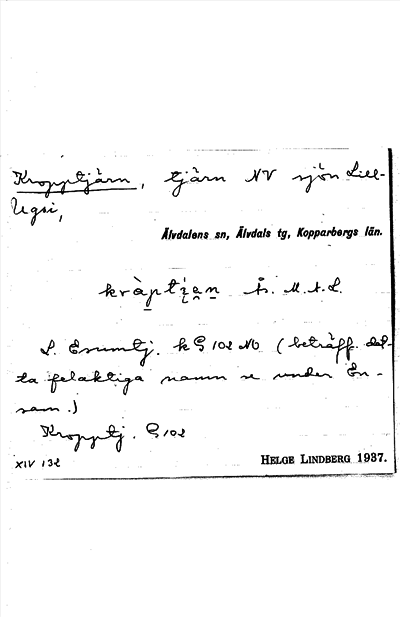 Kropptjärn, tjärn NV sjön Lill-
Ugsi,
Älvdalens sn, Älvdals tg, Kopparbergs län.
kràptįąn
L. Ensamtj. k G 102 NO (beträff. det-
ta felaktiga namn se under En-
sam.)
Kropptj. G 102
XIV 132
HELGE LINDBERG 1937.